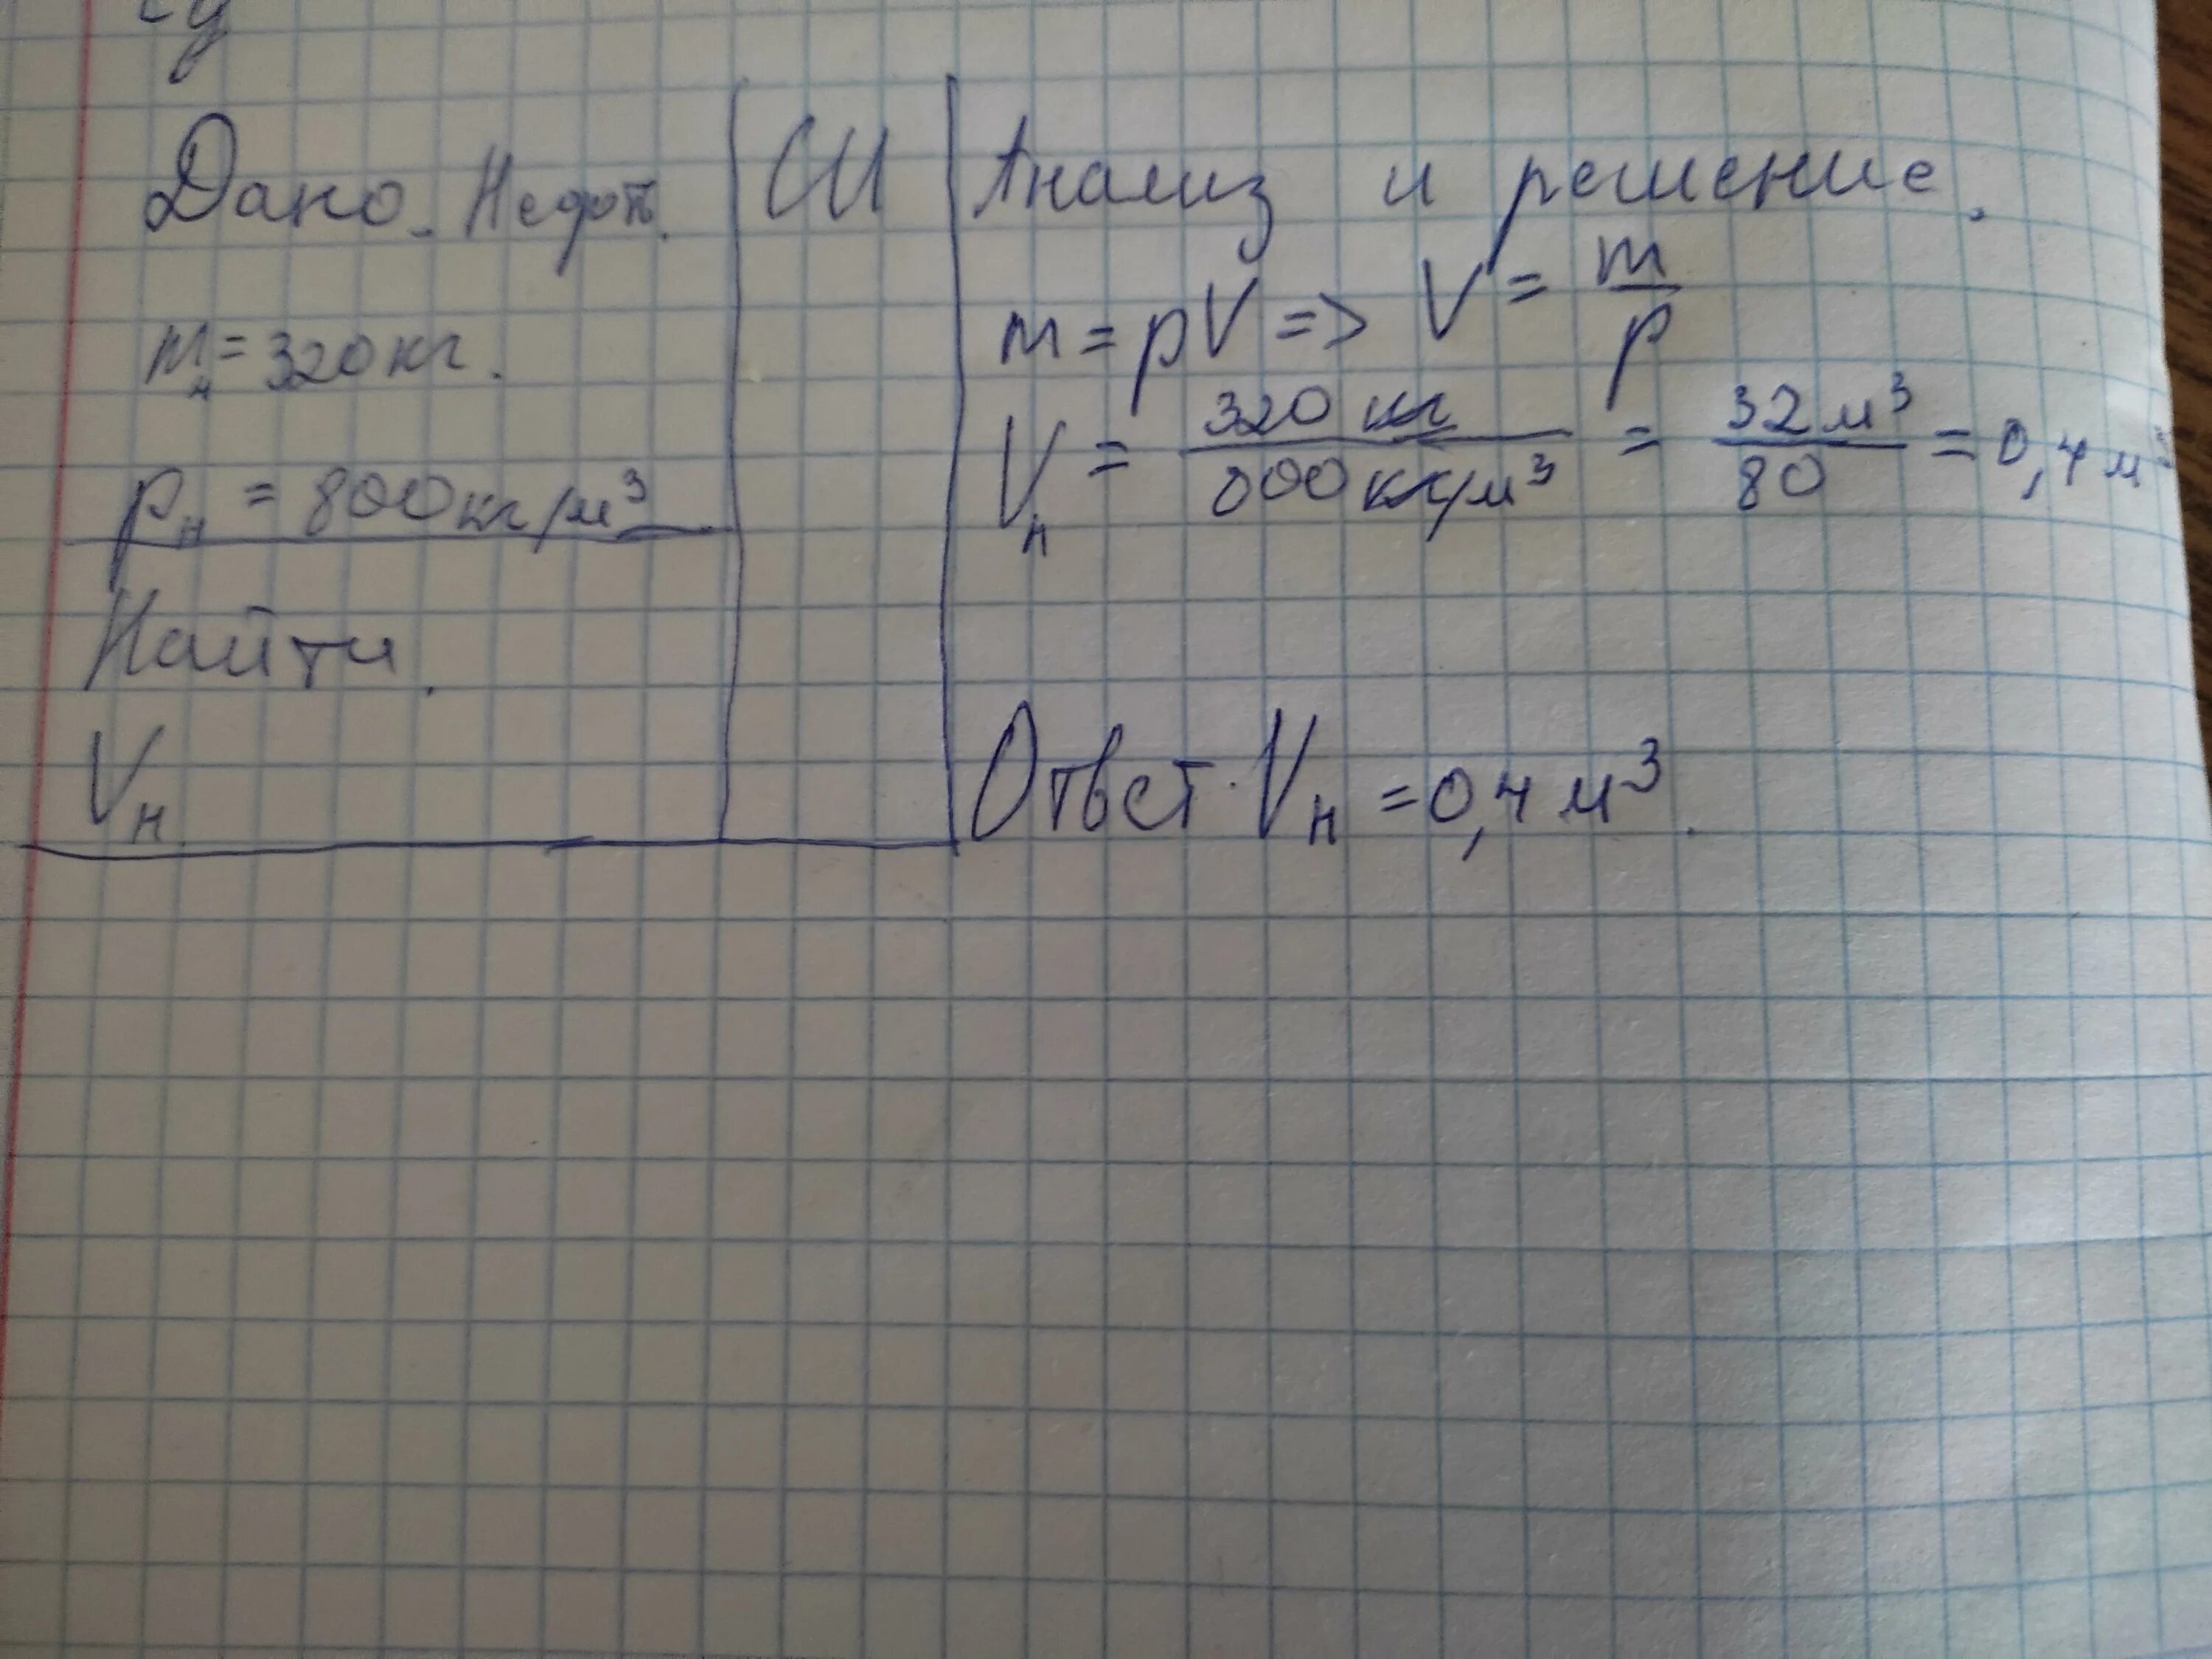 Дано. Нефть.
mн = 320 кг.
ρн = 800 кг/м³
Найти.
Vн
СИ
Анализ и решение.
m = ρV => V = m/ρ
Vн = 320 кг / 800 кг/м³ = 32 м³ / 80 = 0,4 м³
Ответ. Vн = 0,4 м³.